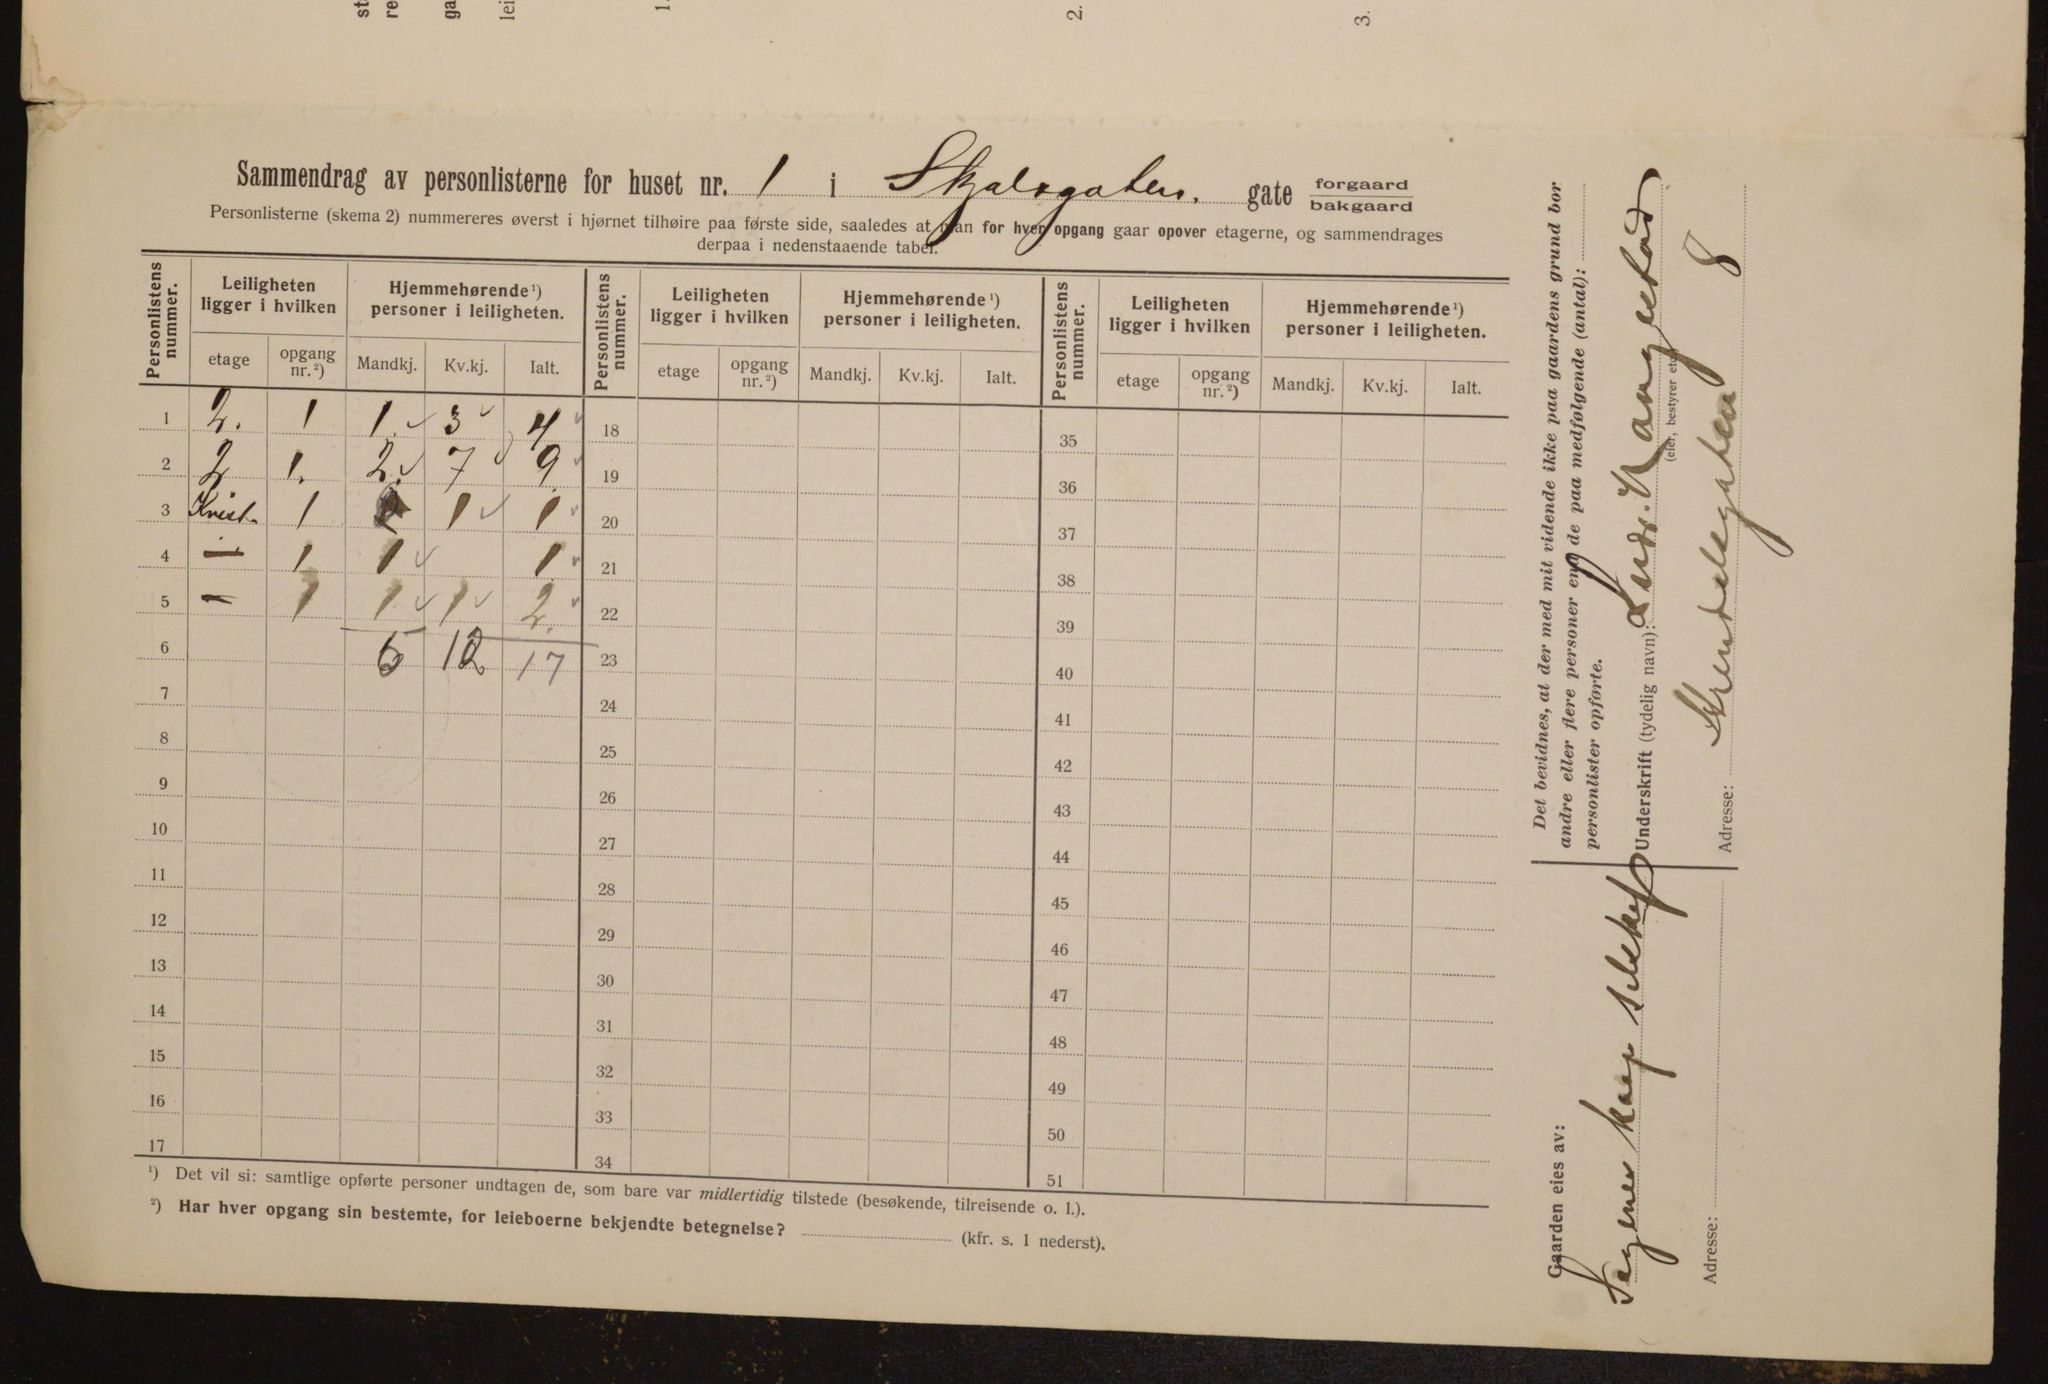 st
re
ga
lei
1.
2.
3.
Sammendrag av personlisterne for huset nr. 1 i Skjalsgaten. gate forgaard bakgaard
Personlisterne (skema 2) nummereres øverst i hjørnet tilhøire paa første side, saaledes at man for hver opgang gaar opover etagerne, og sammendrages
derpaa i nedenstaaende tabel.
Personlistens nummer. Leiligheten ligger i hvilken Hjemmehørende¹) personer i leiligheten. Personlistens nummer. Leiligheten ligger i hvilken Hjemmehørende¹) personer i leiligheten. Personlistens nummer. Leiligheten ligger i hvilken Hjemmehørende¹) personer i leiligheten.
etage opgang nr.²) Mandkj. Kv.kj. Ialt. etage opgang nr.²) Mandkj. Kv.kj. Ialt. etage opgang nr.²) Mandkj. Kv.kj. Ialt.
1 2. 1 1. 3 4 18 35
2 2 1. 2. 7 9 19 36
3 Kvist. 1 1 1 20 37
4 — 1 1 1 21 38
5 — 1 1 1 2. 22 39
6 5 12 17 23 40
7 24 41
8 25 42
9 26 43
10 27 44
11 28 45
12 29 46
13 30 47
14 31 48
15 32 49
16 33 50
17 34 51
¹) Det vil si: samtlige opførte personer undtagen de, som bare var midlertidig tilstede (besøkende, tilreisende o. l.).
²) Har hver opgang sin bestemte, for leieboerne bekjendte betegnelse? (kfr. s. 1 nederst).
Det bevidnes, at der med mit vidende ikke paa gaardens grund bor
andre eller flere personer end de paa medfølgende (antal):
personlister opførte.
Underskrift (tydelig navn):
(eier, bestyrer etc.)
Adresse: 8
Gaarden eies av:
Sagenes
Adresse: